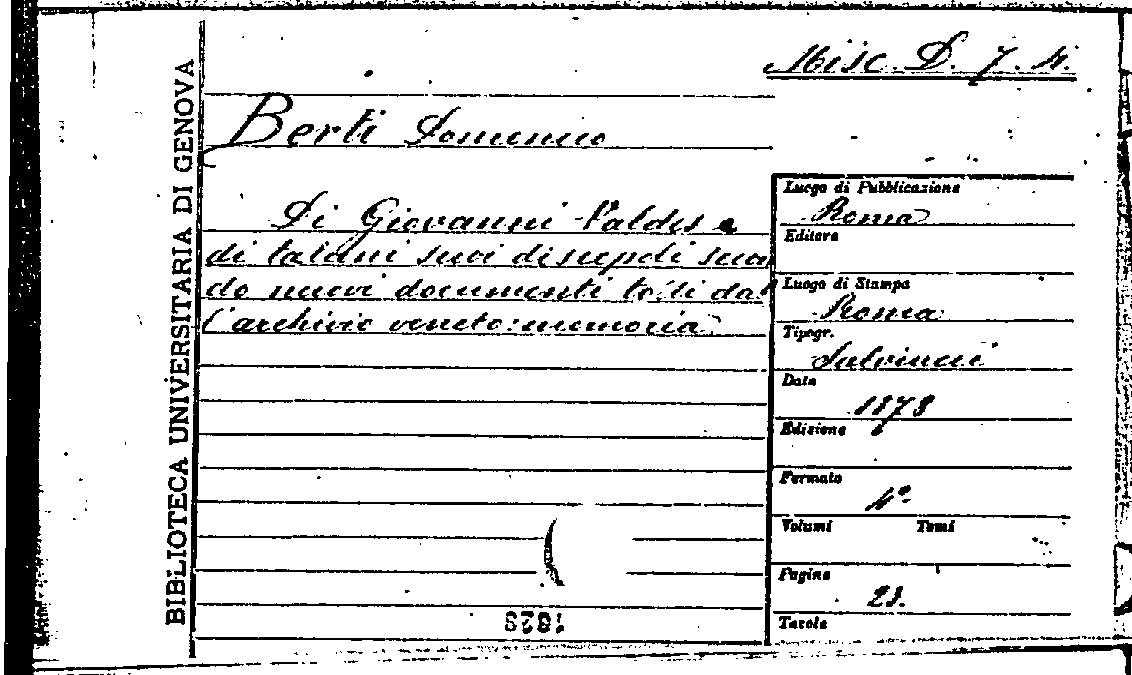 Misc. D. 7. 4.
BIBLIOTECA UNIVERSITARIA DI GENOVA
Berti Domenico
Di Giovanni Valdes e
di taluni suoi discepoli secon
do nuovi documenti tolti dal
l'archivio veneto: memoria
Luogo di Pubblicazione
Roma
Editore
Luogo di Stampa
Roma
Tipogr.
Salviucci
Data
1878
Edizione
Formato
4°
Volumi Tomi
Pagine
Tavole